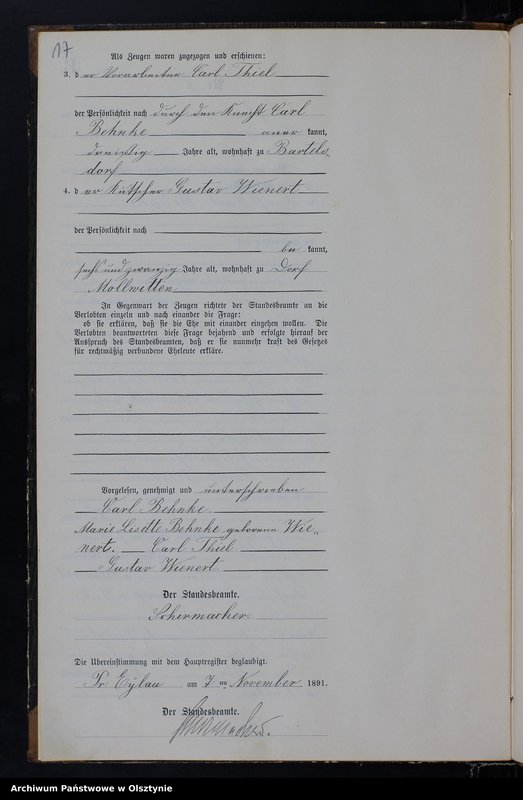 17
Als Zeugen waren zugezogen und erschienen:
3. d er Vorarbeiter Carl Thiel
der Persönlichkeit nach durch den Knecht Carl
Behnke aner kannt,
dreißig Jahre alt, wohnhaft zu Bartels-
dorf
4. d er Kutscher Gustav Wienert
der Persönlichkeit nach
be kannt,
sechs und zwanzig Jahre alt, wohnhaft zu Dorf
Mollwitten
In Gegenwart der Zeugen richtete der Standesbeamte an die
Verlobten einzeln und nach einander die Frage:
ob sie erklären, daß sie die Ehe mit einander eingehen wollen. Die
Verlobten beantworteten diese Frage bejahend und erfolgte hierauf der
Ausspruch des Standesbeamten, daß er sie nunmehr kraft des Gesetzes
für rechtmäßig verbundene Eheleute erkläre.
Vorgelesen, genehmigt und unterschrieben
Carl Behnke.
Marie Lisette Behnke geborene Wie„
nert. Carl Thiel
Gustav Wienert.
Der Standesbeamte.
Schirmacher.
Die Übereinstimmung mit dem Hauptregister beglaubigt.
Pr. Eylau am 7 ten November 1891.
Der Standesbeamte.
Schirmacher.
Archiwum Państwowe w Olsztynie